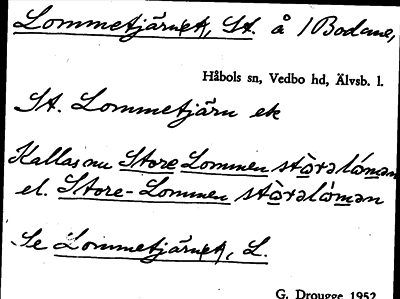 Lommetjärnet, St. å /Bodane,
Håbols sn, Vedbo hd, Älvsb. l.
St. Lommetjärn ek
Kallas nu Store Lommen stòrəlómən
el. Store-Lommen stòrəlóman
Se Lommetjärnet, L.
G. Drougge 1952